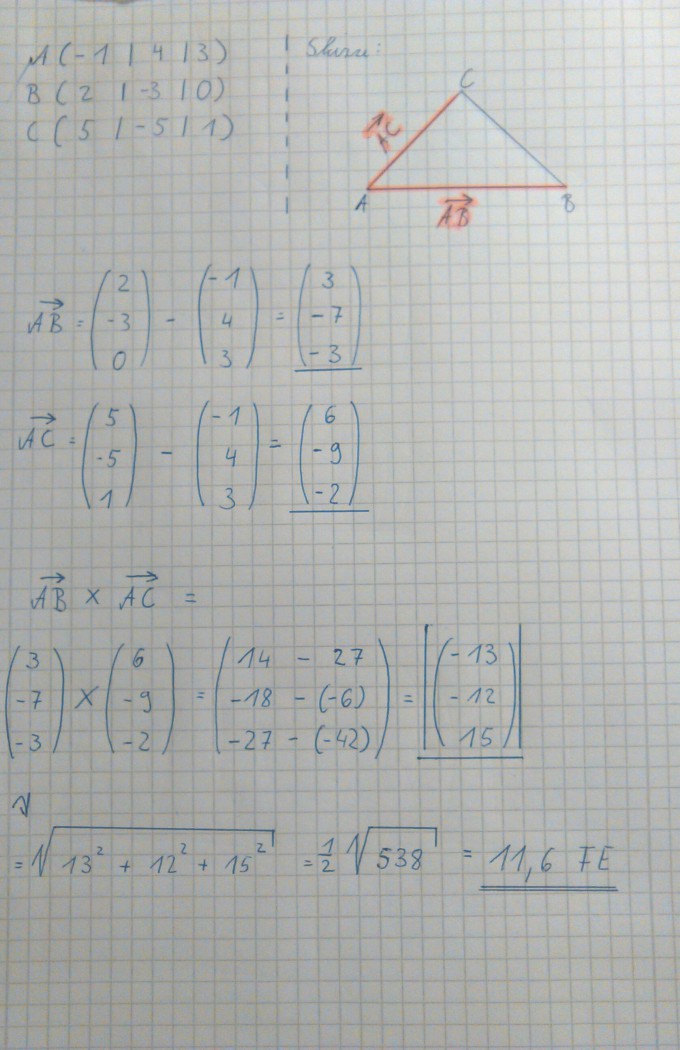 A(-1 | 4 | 3)
B(2 | -3 | 0)
C(5 | -5 | 1)
Skizze:
C
AC
A
B
AB
AB = (2 -3 0) - (-1 4 3) = (3 -7 -3)
AC = (5 -5 1) - (-1 4 3) = (6 -9 -2)
AB × AC =
(3 -7 -3) × (6 -9 -2) = (14 - 27 -18 - (-6) -27 - (-42)) = |(-13 -12 15)|
= √13² + 12² + 15² = 1/2 √538 = 11,6 FE